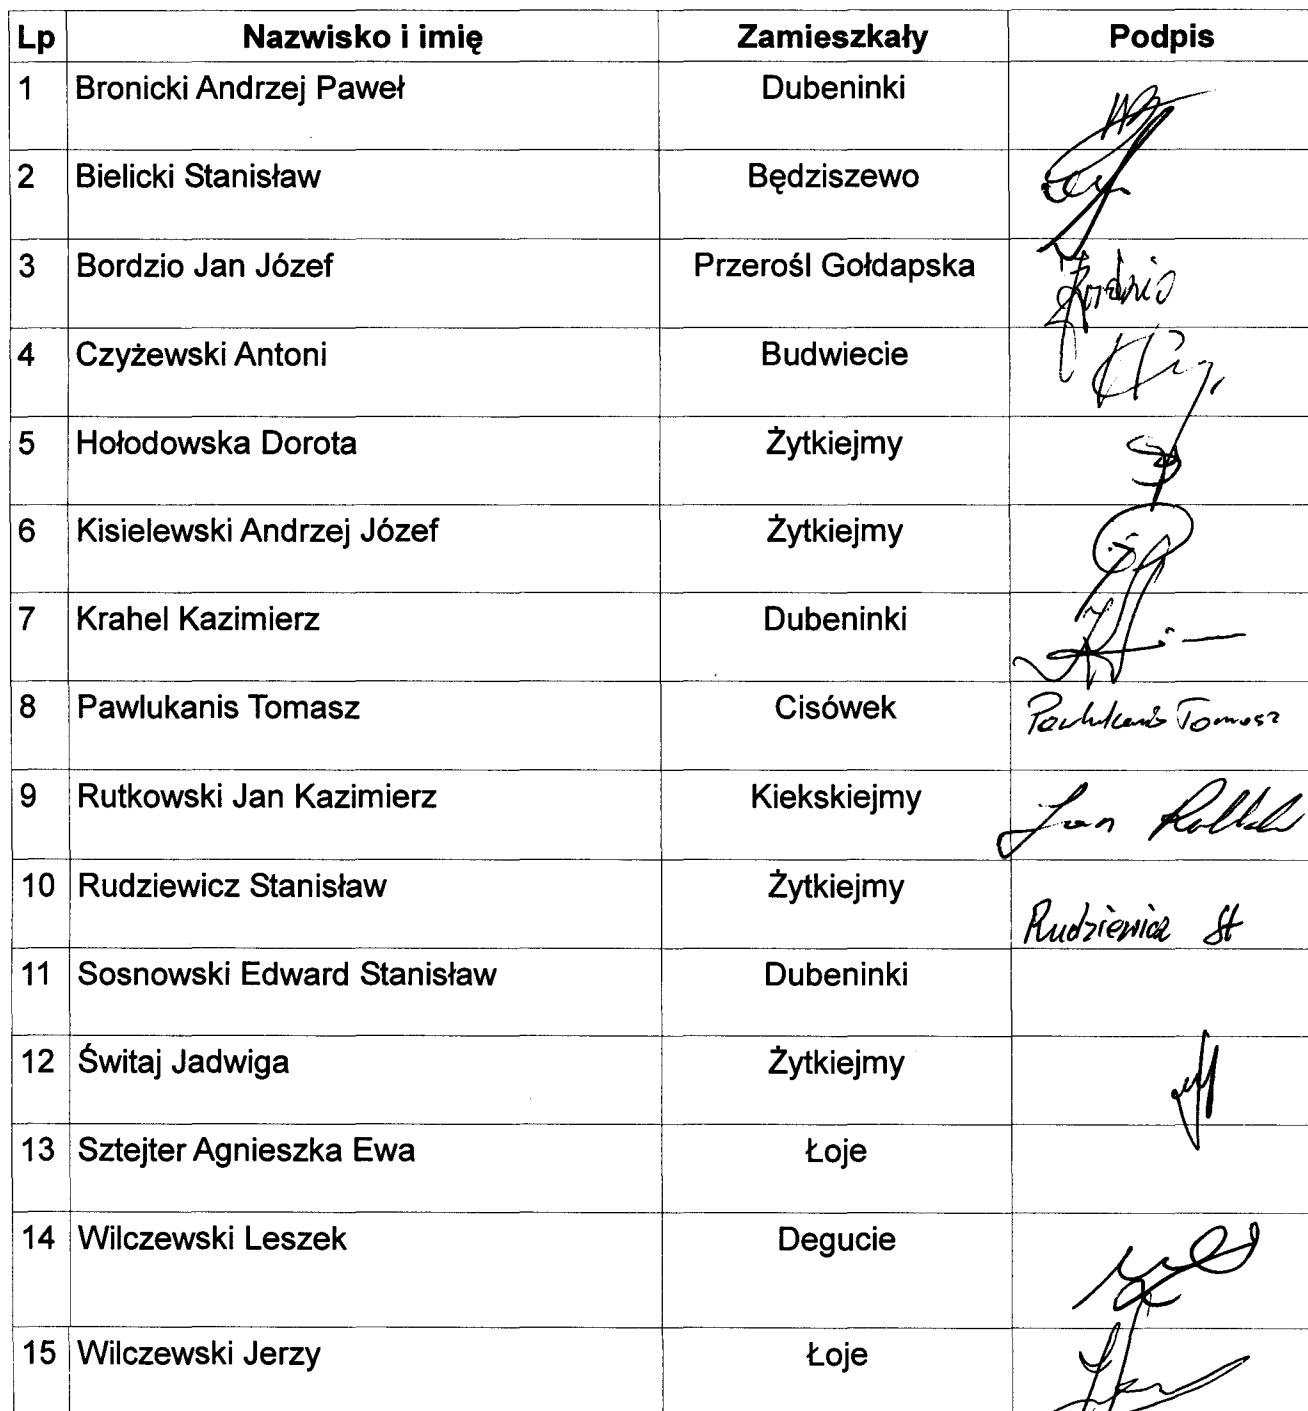 Lp Nazwisko i imię Zamieszkały Podpis
1 Bronicki Andrzej Paweł Dubeninki
2 Bielicki Stanisław Będziszewo
3 Bordzio Jan Józef Przerośl Gołdapska Bordzio
4 Czyżewski Antoni Budwiecie
5 Hołodowska Dorota Żytkiejmy
6 Kisielewski Andrzej Józef Żytkiejmy
7 Krahel Kazimierz Dubeninki
8 Pawlukanis Tomasz Cisówek Pawlukanis Tomasz
9 Rutkowski Jan Kazimierz Kiekskiejmy Jan
10 Rudziewicz Stanisław Żytkiejmy Rudziewicz St
11 Sosnowski Edward Stanisław Dubeninki
12 Świtaj Jadwiga Żytkiejmy
13 Sztejter Agnieszka Ewa Łoje
14 Wilczewski Leszek Degucie
15 Wilczewski Jerzy Łoje